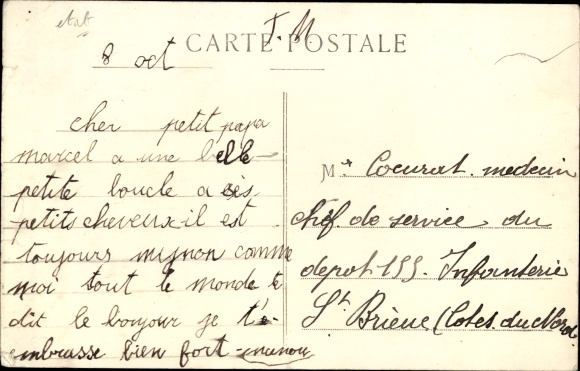 etat
F. M.
CARTE POSTALE
8 oct
cher petit papa
marcel a une belle
petite boucle a ses
petits cheveux il est
toujours mignon comme
moi tout le monde te
dit le bonjour je t'e-
mbrasse bien fort - manou
Mr Coeurat. medecin
chef de service au
depot 155. Infanterie
St Brieuc (Cotes. du Nord